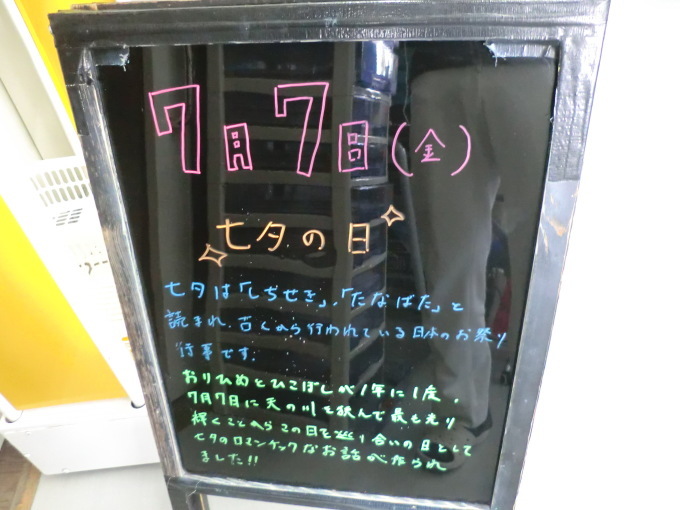 7月7日(金)
七夕の日
七夕は「しちせき」、「たなばた」と
読まれ、古くから行われている日本のお祭り
行事です。
おりひめとひこぼしが1年に1度、
7月7日に天の川を挟んで最も光り
輝くことからこの日を巡り合いの日として
七夕のロマンチックなお話が作られ
ました!!